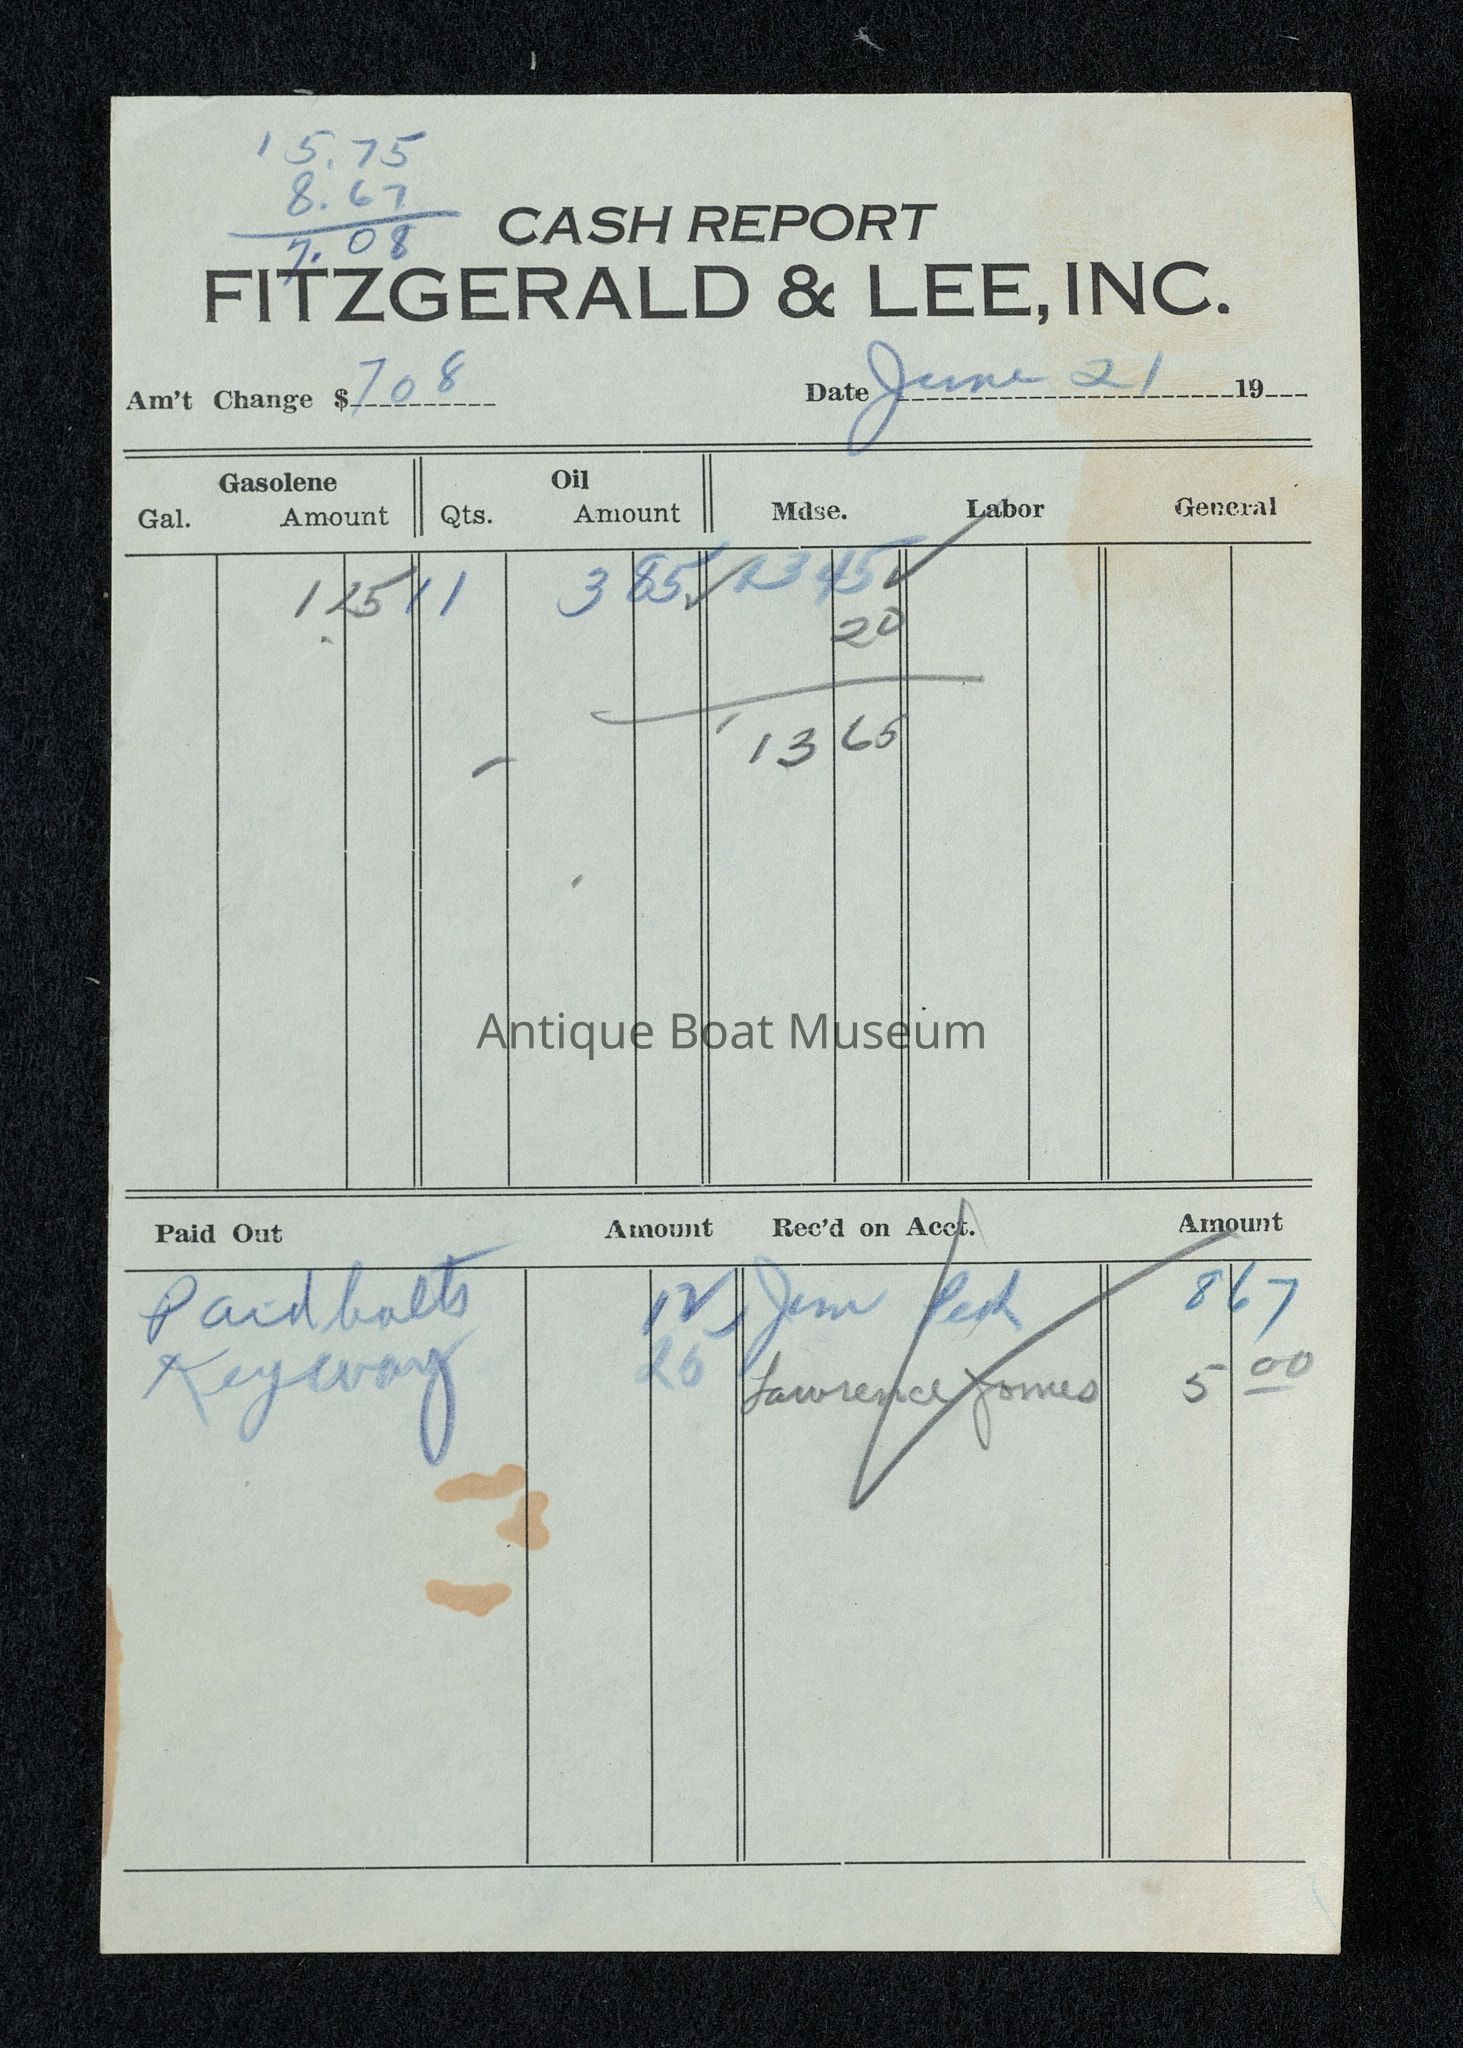 15.75
8.67
7.08
CASH REPORT
FITZGERALD & LEE, INC.
Am't Change $ 708 Date June 21 19
Gasolene Oil
Gal. Amount Qts. Amount Mdse. Labor General
1 25 11 3 85 13 45
20
13 65
Antique Boat Museum
Paid Out Amount Rec'd on Acct. Amount
Paid bolts 12 Jim 8 67
Keyway 25 Lawrence Jomes 5 00